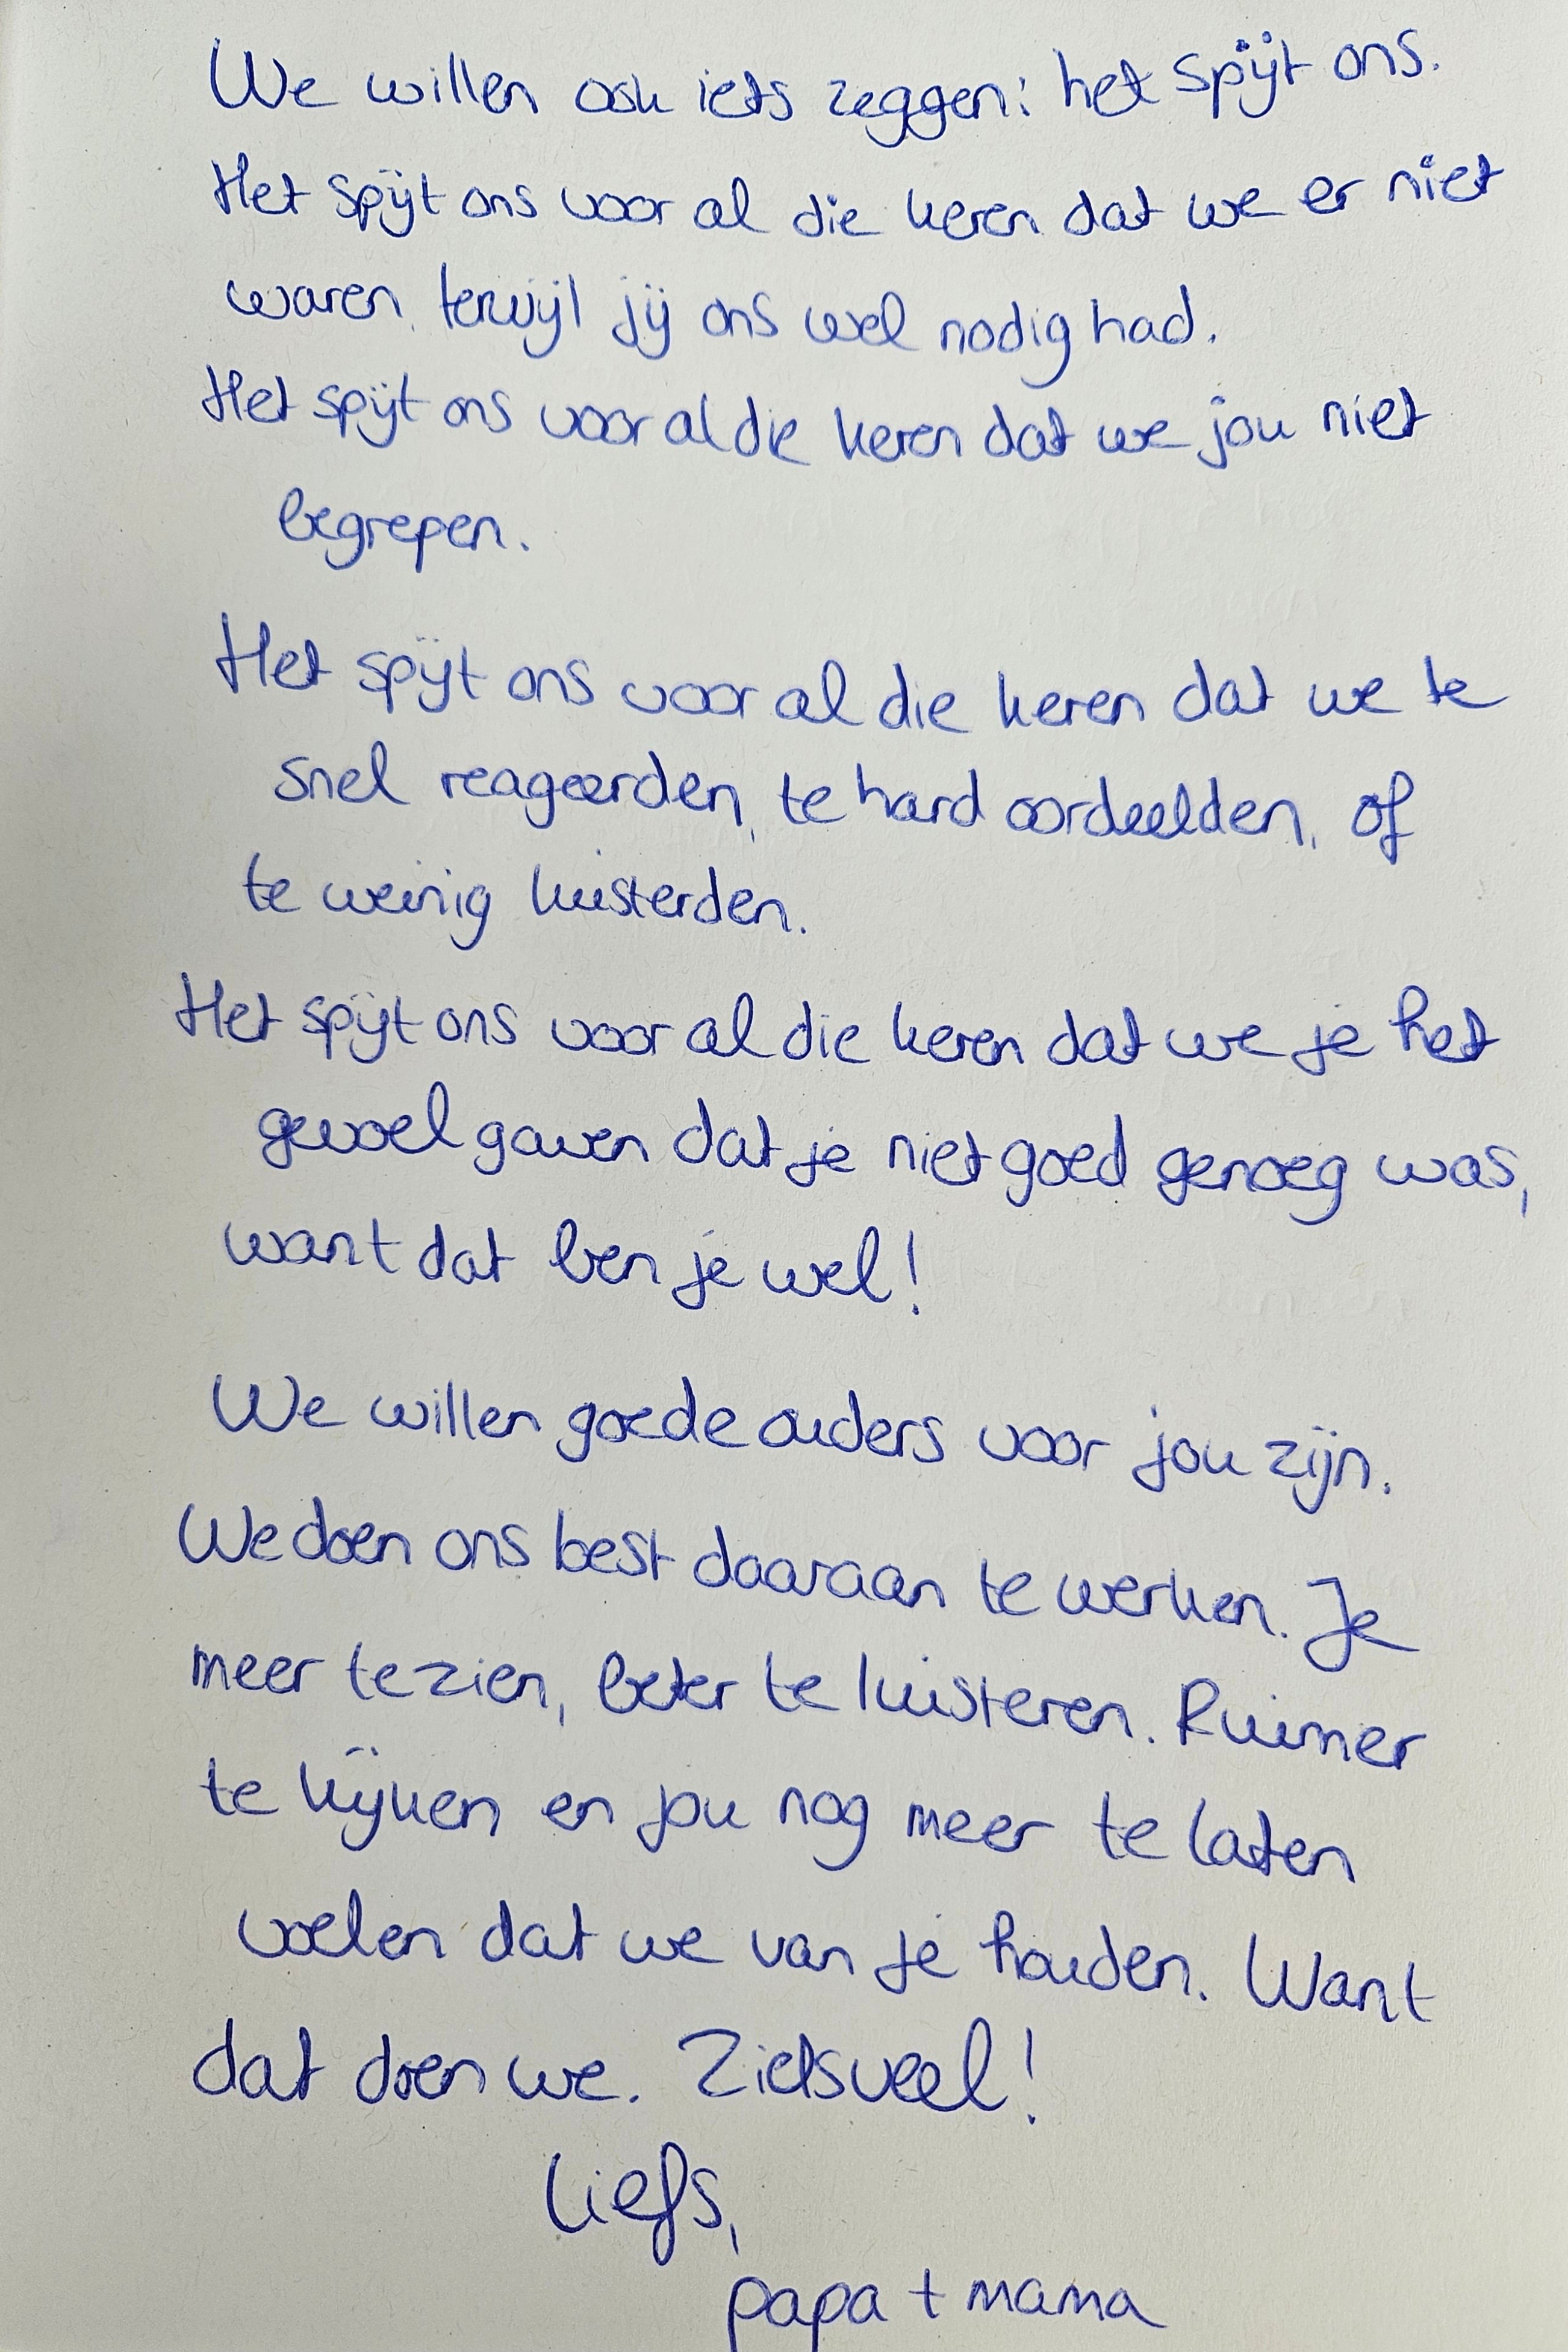 We willen ook iets zeggen: het spijt ons.
Het spijt ons voor al die keren dat we er niet
waren, terwijl jij ons wel nodig had.
Het spijt ons voor al die keren dat we jou niet
begrepen.
Het spijt ons voor al die keren dat we te
snel reageerden, te hard oordeelden, of
te weinig luisterden.
Het spijt ons voor al die keren dat we je het
gevoel gaven dat je niet goed genoeg was,
want dat ben je wel!
We willen goede ouders voor jou zijn.
We doen ons best daaraan te werken. Je
meer te zien, beter te luisteren. Ruimer
te kijken en jou nog meer te laten
voelen dat we van je houden. Want
dat doen we. Zielsveel!
Liefs,
papa + mama